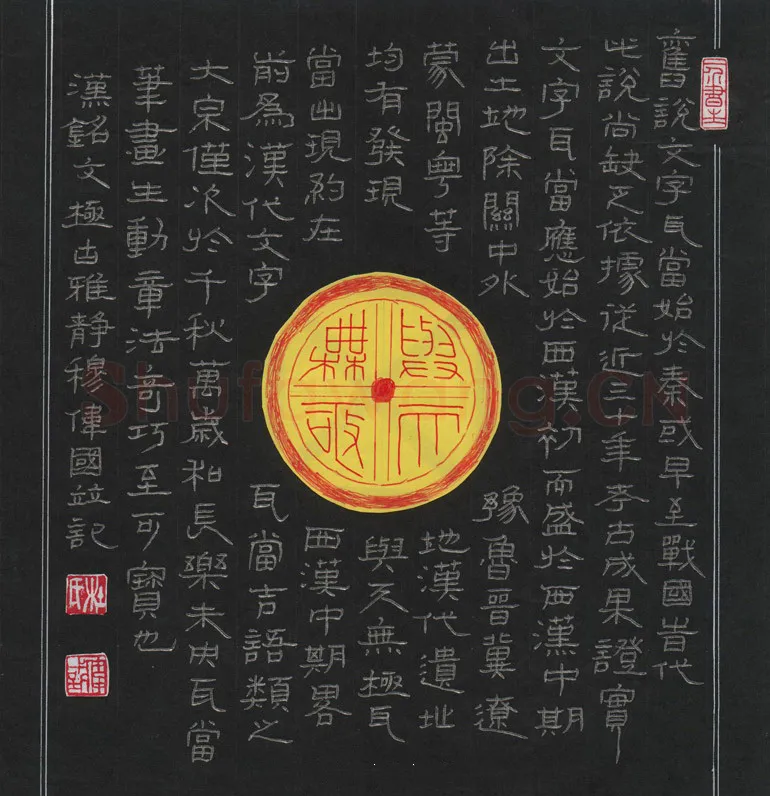 舊說文字瓦當始於秦或早至戰國旹代
此說尚缺乏依據從近三十年考古成果證實
文字瓦當應始於西漢初而盛於西漢中期
出土地除關中外豫魯晉冀遼
蒙閩粵等地漢代遺址
均有發現與天無極瓦
當出現約在西漢中期畧
前為漢代文字瓦當吉語類之
大宗僅次於千秋萬歲和長樂未央瓦當
筆畫生動章法奇巧至可寶也
漢銘文極古雅靜穆偉國竝記
與天
無極
杜氏